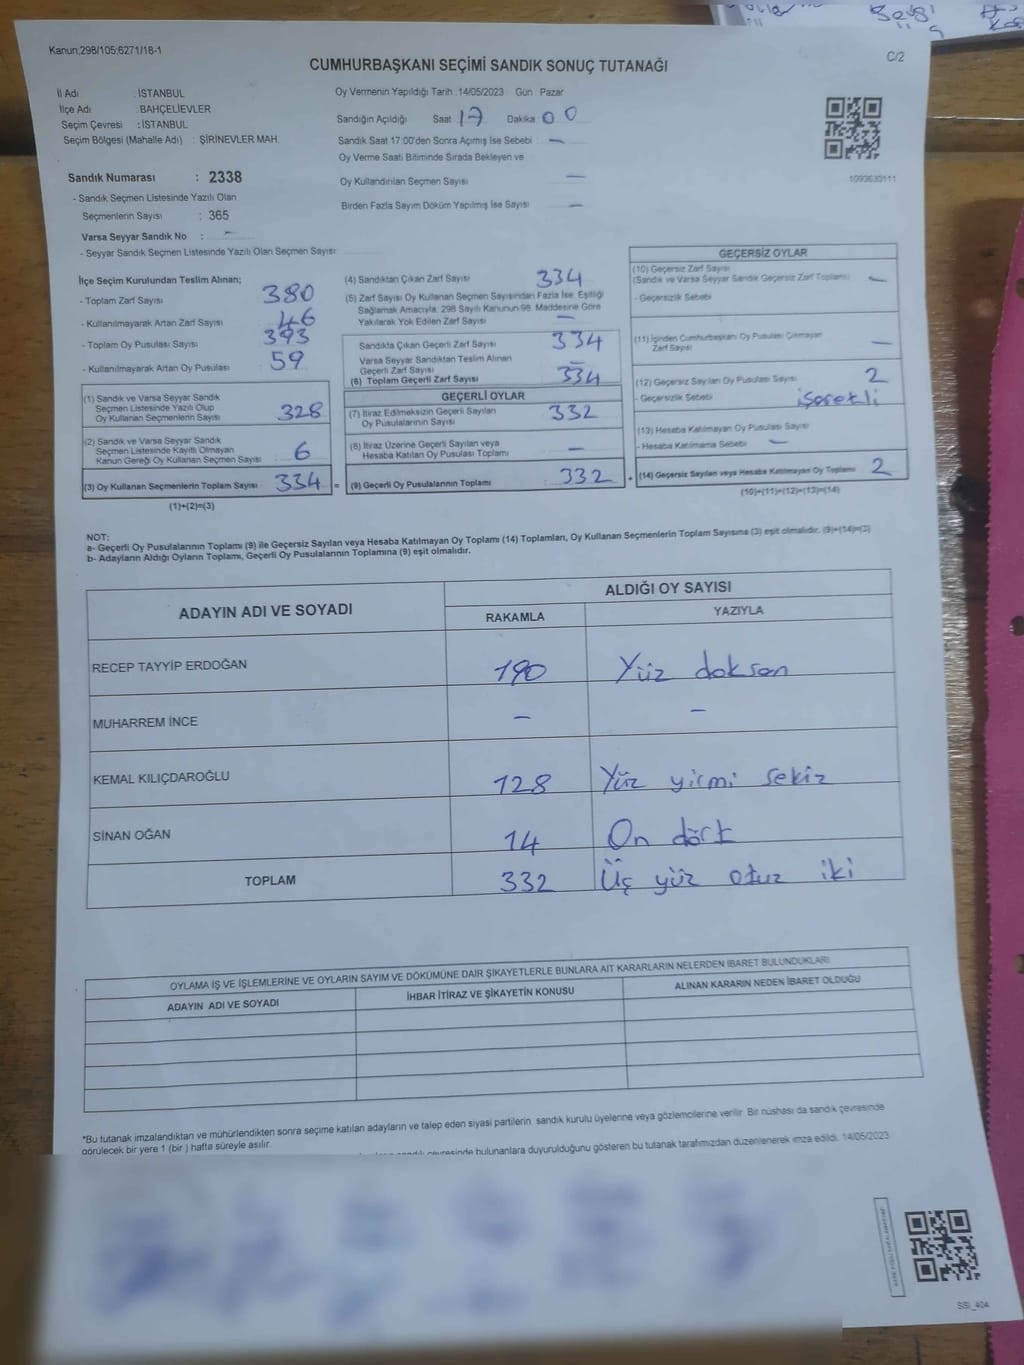 Kanun,298/105;6271/18-1
C/2
CUMHURBAŞKANI SEÇİMİ SANDIK SONUÇ TUTANAĞI
İl Adı : İSTANBUL
İlçe Adı : BAHÇELİEVLER
Seçim Çevresi : İSTANBUL
Seçim Bölgesi (Mahalle Adı) : ŞİRİNEVLER MAH
Sandık Numarası : 2338
- Sandık Seçmen Listesinde Yazılı Olan
Seçmenlerin Sayısı : 365
Varsa Seyyar Sandık No : -
- Seyyar Sandık Seçmen Listesinde Yazılı Olan Seçmen Sayısı:
Oy Vermenin Yapıldığı Tarih :14/05/2023 Gün Pazar
Sandığın Açıldığı Saat 17 Dakika 00
Sandık Saat 17:00'den Sonra Açımış İse Sebebi : -
Oy Verme Saati Bitiminde Sırada Bekleyen ve
Oy Kullandırılan Seçmen Sayısı -
Birden Fazla Sayım Döküm Yapılmış İse Sayısı -
1093630111
İlçe Seçim Kurulundan Teslim Alınan;
- Toplam Zarf Sayısı 380
- Kullanılmayarak Artan Zarf Sayısı 46
- Toplam Oy Pusulası Sayısı 393
- Kullanılmayarak Artan Oy Pusulası 59
(1) Sandık ve Varsa Seyyar Sandık
Seçmen Listesinde Yazılı Olup
Oy Kullanan Seçmenlerin Sayısı 328
(2) Sandık ve Varsa Seyyar Sandık
Seçmen Listesinde Kayıtlı Olmayan
Kanun Gereği Oy Kullanan Seçmen Sayısı 6
(3) Oy Kullanan Seçmenlerin Toplam Sayısı 334 =
(1)+(2)=(3)
(4) Sandıktan Çıkan Zarf Sayısı 334
(5) Zarf Sayısı Oy Kullanan Seçmen Sayısından Fazla İse, Eşitliği
Sağlamak Amacıyla, 298 Sayılı Kanunun 98. Maddesine Göre
Yakılarak Yok Edilen Zarf Sayısı -
Sandıkta Çıkan Geçerli Zarf Sayısı 334
Varsa Seyyar Sandıktan Teslim Alınan
Geçerli Zarf Sayısı -
(6) Toplam Geçerli Zarf Sayısı 334
GEÇERLİ OYLAR
(7) İtiraz Edilmeksizin Geçerli Sayılan
Oy Pusulalarının Sayısı 332
(8) İtiraz Üzerine Geçerli Sayılan veya
Hesaba Katılan Oy Pusulası Toplamı -
(9) Geçerli Oy Pusulalarının Toplamı : 332 +
GEÇERSİZ OYLAR
(10) Geçersiz Zarf Sayısı
(Sandık ve Varsa Seyyar Sandık Geçersiz Zarf Toplamı) -
- Geçersizlik Sebebi
(11) İçinden Cumhurbaşkanı Oy Pusulası Çıkmayan
Zarf Sayısı -
(12) Geçersiz Sayılan Oy Pusulası Sayısı 2
- Geçersizlik Sebebi : işaretli
(13) Hesaba Katılmayan Oy Pusulası Sayısı
- Hesaba Katılmama Sebebi -
(14) Geçersiz Sayılan veya Hesaba Katılmayan Oy Toplamı 2
(10)+(11)+(12)+(13)=(14)
NOT:
a- Geçerli Oy Pusulalarının Toplamı (9) ile Geçersiz Sayılan veya Hesaba Katılmayan Oy Toplamı (14) Toplamları, Oy Kullanan Seçmenlerin Toplam Sayısına (3) eşit olmalıdır. (9)+(14)=(3)
b- Adayların Aldığı Oyların Toplamı, Geçerli Oy Pusulalarının Toplamına (9) eşit olmalıdır.
ADAYIN ADI VE SOYADI
ALDIĞI OY SAYISI
RAKAMLA YAZIYLA
RECEP TAYYİP ERDOĞAN 190 Yüz doksan
MUHARREM İNCE - -
KEMAL KILIÇDAROĞLU 128 Yüz yirmi sekiz
SİNAN OĞAN 14 On dört
TOPLAM 332 Üç yüz otuz iki
OYLAMA İŞ VE İŞLEMLERİNE VE OYLARIN SAYIM VE DÖKÜMÜNE DAİR ŞİKAYETLERLE BUNLARA AİT KARARLARIN NELERDEN İBARET BULUNDUKLARI
ADAYIN ADI VE SOYADI İHBAR İTİRAZ VE ŞİKAYETİN KONUSU ALINAN KARARIN NEDEN İBARET OLDUĞU
*Bu tutanak imzalandıktan ve mühürlendikten sonra seçime katılan adayların ve talep eden siyasi partilerin sandık kurulu üyelerine veya gözlemcilerine verilir. Bir nüshası da sandık çevresinde
görülecek bir yere 1 (bir ) hafta süreyle asılır.
bulunanlara duyurulduğunu gösteren bu tutanak tarafımızdan düzenlenerek imza edildi. 14/05/2023
SSI_404